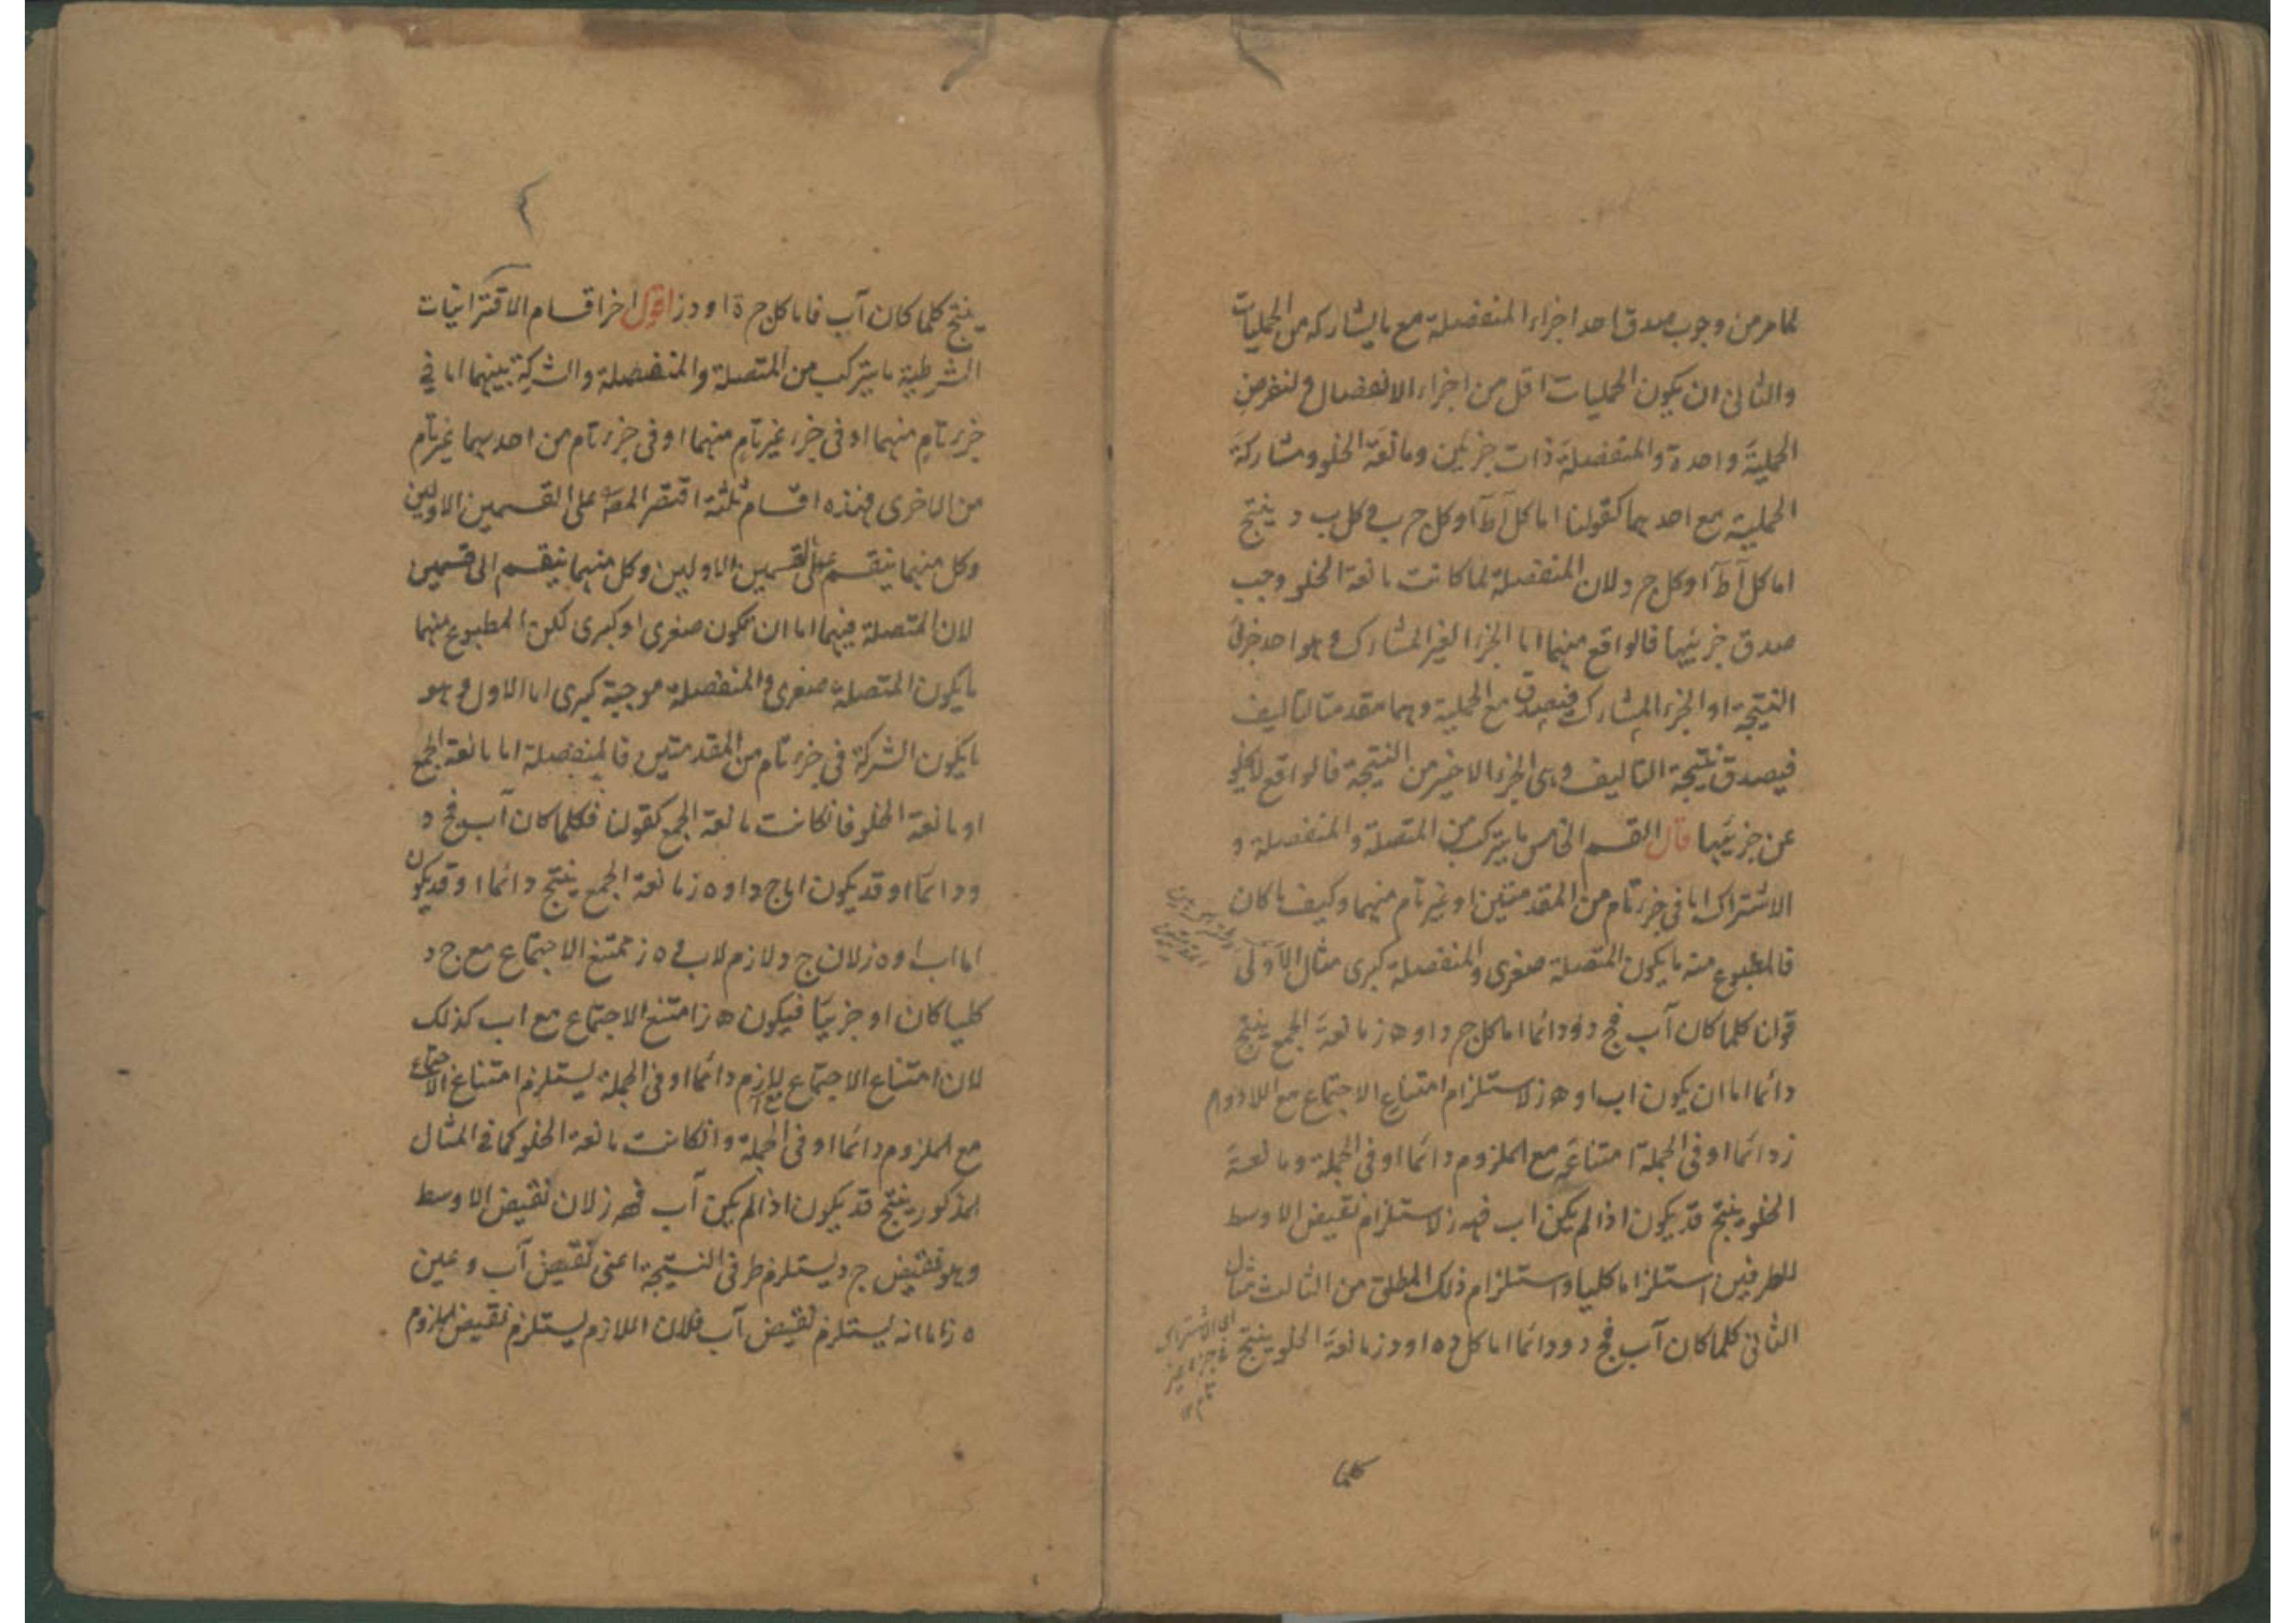 لما مر من وجوب صدق احد اجزاء المنفصلة مع ما يشاركه من الحمليات
والثانى ان يكون الحمليات اقل من اجزاء الانفصال ولنفرض
الحملية واحدة والمنفصلة ذات جزئين ومانعة الخلو ومشاركة
الحملية مع احدهما كقولنا اما كل آ ط آ او كل ج ب و كل ب د ينتج
اما كل آ ط آ او كل ج د لان المنفصلة لما كانت مانعة الخلو وجب
صدق جزئيها فالواقع منهما اما الجزء الغير المشارك وهو احد جزئى
النتيجة او الجزء المشارك فيصدق مع الحملية وهما مقدمتا التاليف
فيصدق نتيجة التاليف وهى الجزء الاخير من النتيجة فالواقع لا يخلو
عن جزئيها قال القسم الخامس ما يتركب من المتصلة والمنفصلة و
الاشتراك اما فى جزء تام من المقدمتين او غير تام منهما وكيف ما كان
فالمطبوع منه ما يكون المتصلة صغرى والمنفصلة كبرى مثال الاول
قولنا كلما كان آب فج د ودائما اما كل ج د او ه ز مانعة الجمع ينتج
دائما اما ان يكون اب او ه ز لاستلزام امتناع الاجتماع مع اللازم
ز دائما او فى الجملة امتناعه مع الملزوم دائما او فى الجملة ومانعة
الخلو ينتج قد يكون اذا لم يكن اب فه ز لاستلزام نقيض الاوسط
للطرفين استلزاما كليا واستلزام ذلك المطلق من الثالث مثال
الثانى كلما كان آب فج د ودائما اما كل د ه او د ز مانعة الخلو ينتج
اى الاشتراك
فى جزء غير
تام
كلما
ينتج كلما كان آب فاما كل ج ة او د ز اقول اخر اقسام الاقترانيات
الشرطية ما يتركب من المتصلة والمنفصلة والشركة بينهما اما فى
جزء تام منهما او فى جزء غير تام منهما او فى جزء تام من احدهما غير تام
من الاخرى فهذه اقسام ثلثة اقتصر المص على القسمين الاولين
وكل منهما ينقسم على القسمين الاولين وكل منهما ينقسم الى قسمين
لان المتصلة فيهما اما ان تكون صغرى او كبرى لكن المطبوع منهما
ما يكون المتصلة صغرى والمنفصلة موجبة كبرى اما الاول وهو
ما يكون الشركة فى جزء تام من المقدمتين فالمنفصلة اما مانعة الجمع
او مانعة الخلو فان كانت مانعة الجمع كقولنا فكلما كان آب فج د
و دائما او قد يكون اما ج د او ه ز مانعة الجمع ينتج دائما او قد يكون
اما اب او ه ز لان ج د لازم لاب و ه ز ممتنع الاجتماع مع ج د
كليا كان او جزئيا فيكون ه ز امتنع الاجتماع مع اب كذلك
لان امتناع الاجتماع مع اللازم دائما او فى الجملة يستلزم امتناع الاجتماع
مع الملزوم دائما او فى الجملة وان كانت مانعة الخلو كما فى المثال
المذكور ينتج قد يكون اذا لم يكن آب فه ز لان نقيض الاوسط
وهو نقيض ج د يستلزم طرفى النتيجة اعنى نقيض آب وعين
ه ز اما انه يستلزم نقيض آب فلان اللازم يستلزم نقيض الملزوم